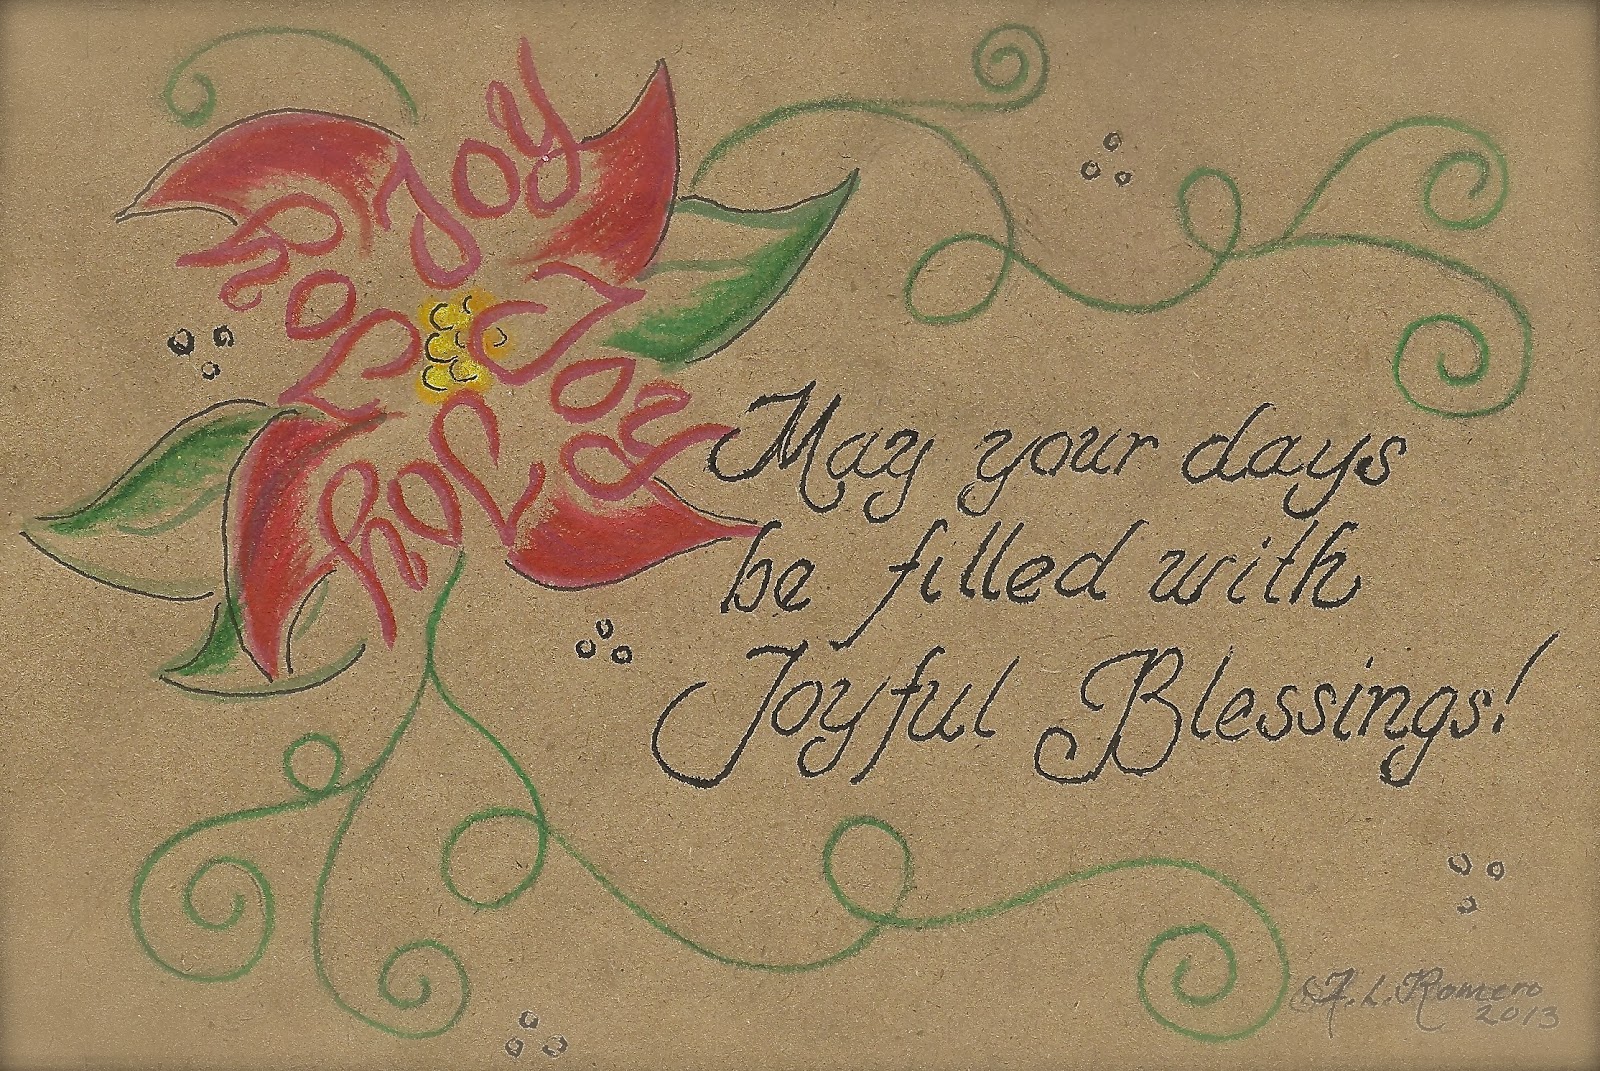 Joy
Joy
Joy
Joy
May your days
be filled with
Joyful Blessings!
A. L. Romero
2013